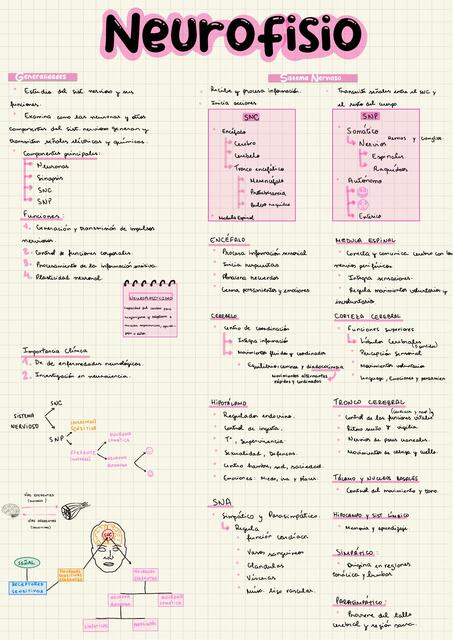 Neurofisio
Generalidades
Estudia del sist. nervioso y sus
funciones.
Examina como las neuronas y otros
componentes del sist. nervioso generan y
transmiten señales eléctricas y químicas.
Componentes principales:
Neuronas
Sinapsis
SNC
SNP
Funciones:
1. Generación y transmisión de impulsos
nerviosos.
2. Control de funciones corporales.
3. Procesamiento de la información
4. Plasticidad neuronal
NEUROPLASTICIDAD
Importancia Clínica
1. Dx de enfermedades neurológicas.
2. Investigación en neurociencia.
SISTEMA
NERVIOSO
SNC
SNP
AFERENTE
SENSITIVA
EFERENTE
(MOTORA)
NEURONA
SOMÁTICA
NEURONA
AUTÓNOMA
VÍAS EFERENTES
VÍAS AFERENTES
SNC
SEÑAL
RECEPTORES
SENSITIVOS
NEURONAS
SENSITIVAS
NEURONAS
EFERENTES
NEURONA
AUTÓNOMA
NEURONA
SOMÁTICA
SIMPÁTICAS
Sistema Nervioso
Recibe y procesa información.
Inicia acciones
SNC
Encéfalo
Cerebro
Cerebelo
Tronco encefálico
Mesencéfalo
Protuberancia
Bulbo raquídeo
Medula Espinal
Transmite señales entre el SNC y
el resto del cuerpo.
SNP
Somático
Nervios
Espinales
Raquídeos
Autónomo
Entérico
ENCÉFALO
Procesa información sensorial
Inicia respuestas
Almacena recuerdos
Genera pensamientos y emociones
MEDULA ESPINAL
Conecta y comunica cerebro con los
nervios periféricos
Integra sensaciones.
Regula movimientos voluntarios y
involuntarios
CEREBELO
Centro de coordinación
Integra información
Movimientos fluidos y coordinados
Equilibrio, camina y diadococinesia
movimientos alternantes
rápidos y coordinados
CORTEZA CEREBRAL
Funciones superiores
Lóbulos Cerebrales
Percepción sensorial
Movimientos voluntarios
Lenguaje, Emociones y pensamien
HIPOTÁLAMO
Regulador endocrino.
Control de ingesta.
T°, Supervivencia
Sexualidad, Defensas.
Centro hambre, sed, saciedad.
Emociones: Miedo, ira y placer.
TRONCO CEREBRAL
Control de las funciones vitales
Ritmo sueño y vigilia
Nervios de pares craneales.
Movimientos de cabeza y cuello.
TÁLAMO Y NUCLEOS BASALES
Control del movimiento y tono.
HIPOCAMPO Y SIST. LÍMBICO
Memoria y aprendizaje.
SNA
Simpático y Parasimpático.
Regula
función cardíaca
Vasos sanguíneos
Glándulas
Vísceras
Músc. liso vascular.
SIMPÁTICO:
Origina en regiones
torácica y lumbar
PARASIMPÁTICO:
Proviene del tallo
cerebral y región sacra.